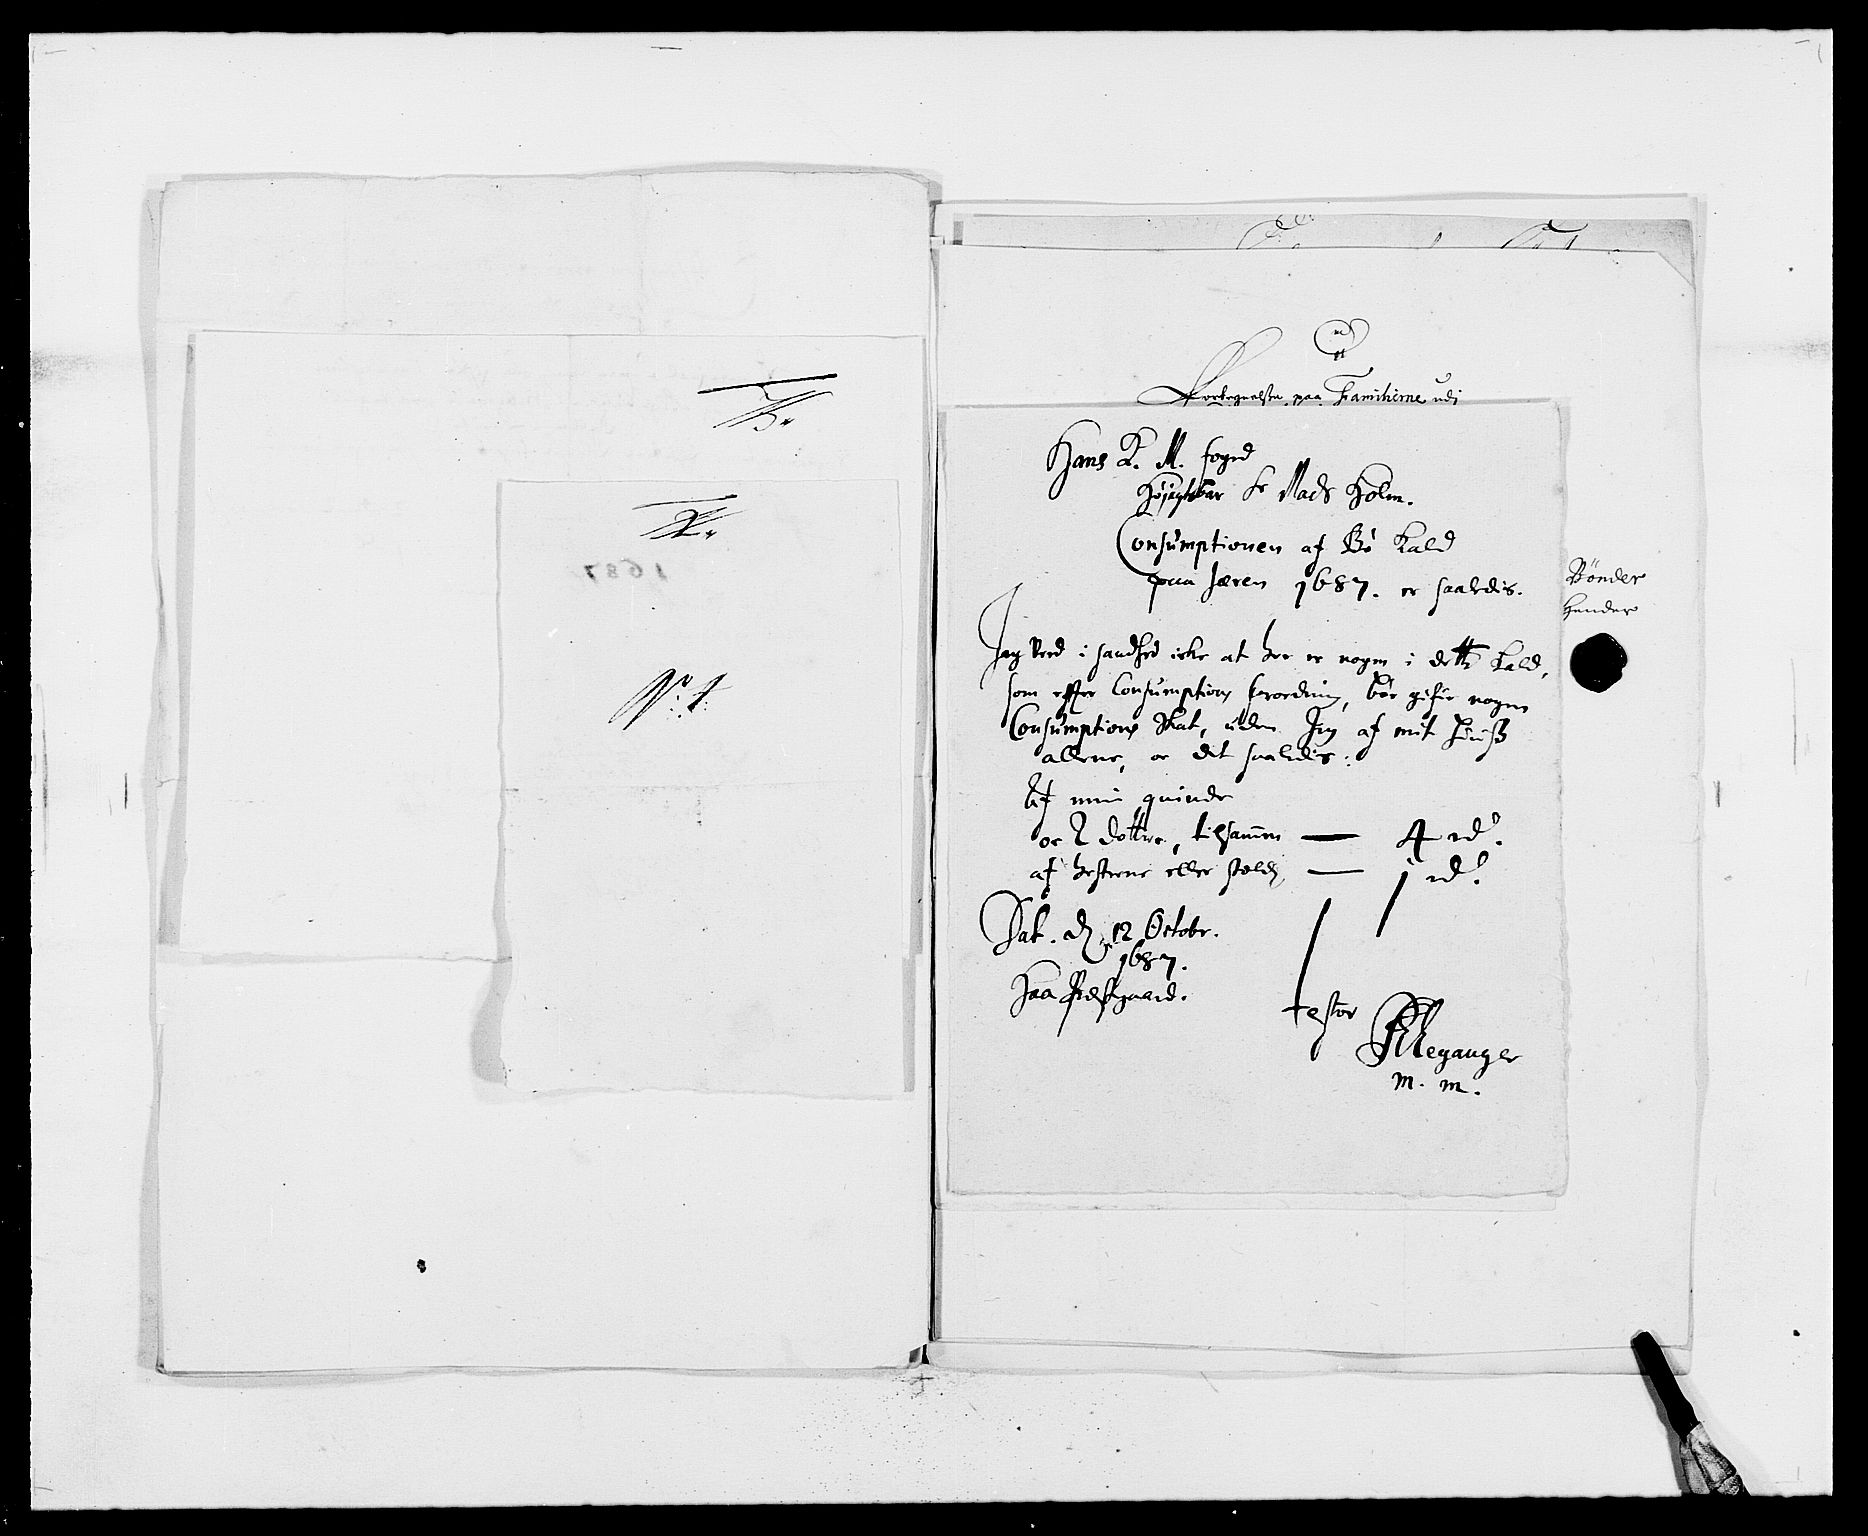 No. 1.
Fortegnelse paa Familierne udi
Hans K. M. foged
Høyagtbar Sr Mads Holm.
Consumptionen af Bø Kald
paa Jæren 1687. er saaledis.
Jeg Veed i sandhed icke at her er nogen i dette Kald,
som effter Consumptions forordning, bør gifue nogen
Consumptions Skat, uden Jeg af mit Huuss
allene, oc det saaledis:
Af min quinde
oc 2 dottre, tilsamen — 4 rdr.
af hesterne eller
— 1 rdr.
Dat. d. 12 Octobr.
1687.
paa Prestgaard.
testor
m. m.
Bønder
1687